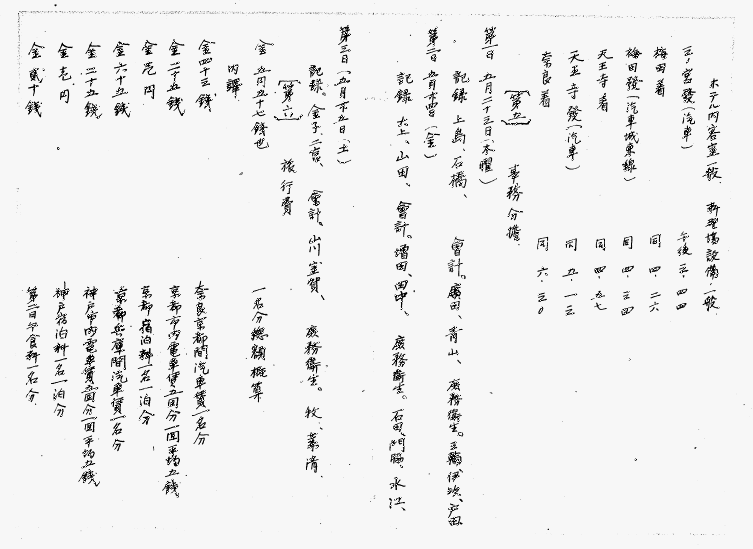 ホテル内客室一般、料理場設備一般
三ノ宮發（汽車） 午後三・四四
梅田着 同四・二六
梅田發（汽車城東線） 同四・三四
天王寺着 同四・五七
天王寺發（汽車） 同五・一三
奈良着 同六・三〇
［第五］ 事務分擔
第一日 五月二十三日（木曜）
記録 上島、石橋、 會計。廣田、青山、 庶務衞生。三鶴、伊吹、戸田
第二日 五月廿四日（金）
記録 大上、山田、 會計。増田、田中、 庶務衞生。石田、門脇、水江、
第三日（五月廿五日（土）
記録。金子、二宮、 會計。山川、宝賀、 庶務衞生。牧、
［第六］ 旅行費
金 五円五十七錢也 一名分總額概算
内譯
金四十三錢 奈良京都間汽車賃一名分
金二十五錢 京都市内電車賃五回分一回平均五錢
金壱円 京都宿泊料一名一泊分
金六十五錢 京都兵庫間汽車賃一名分
金二十五錢 神戸市内電車賃五回分一回平均五錢
金壱円 神戸宿泊料一名一泊分
金貳十錢 第二日午食料一名分